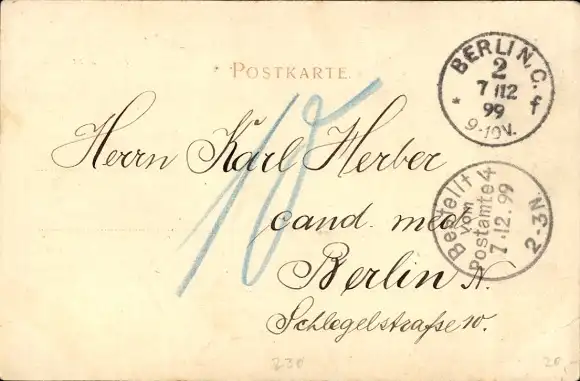 POSTKARTE.
BERLIN, C.
2
7 112
99
* f
9-10V.
10
Herrn Karl Herber
cand. med.
Berlin N.
Schlegelstraße 10.
Bestellt
vom
Postamte 4
7.12.99
2-3N
230
20,-